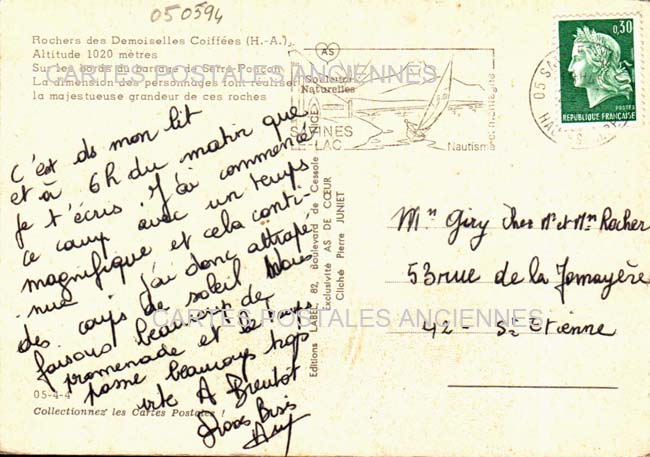 050594
Rochers des Demoiselles Coiffées (H.-A.),
Altitude 1020 mètres
Sur les bords du barrage de Serre-Ponçon
La dimension des personnages font réaliser
la majestueuse grandeur de ces roches
CARTES POSTALES ANCIENNES
C'est ds mon lit
et à 6h du matin que
je t'écris. J'ai commencé
ce camp avec un temps
magnifique et cela conti-
nue j'ai donc attrapé
des coups de soleil Nous
faisons beaucoup de
promenade et le temps
passe beaucoup trop
vite A Bientôt
Gros Bisis
05-4-4
Collectionnez les Cartes Postales !
Editions LABEL, 82, Boulevard de Cessole NICE
Exclusivité AS DE CŒUR
Cliché Pierre JUNIET
AS
Naturelles
SAVINES
LE-LAC
Nautisme
et montagne
05 SA
HAUTES
0,30
POSTES
REPUBLIQUE FRANÇAISE
Giry chez Mr et Mm Rocher
53 rue de la Jomayère
CARTES POSTALES ANCIENNES
42 - St Etienne